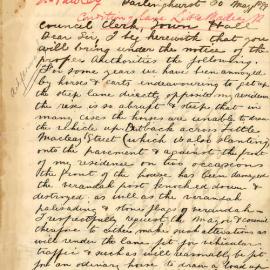 Darlinghurst 30 May 189
Curtong Lane & Little Macleay St
Council Clerk, Town Hall
Dear Sir, I beg herewith that you
will bring under the notice of the
proper Authorities the following.
For some years we have been annoyed
by horse & carts endeavouring to get up
the steep lane directly opposite my residence
the rise is so abrupt & steep that in
many cases the horses are unable to draw
the vehicle up & back across Little
Macleay Street (which is also slanting)
onto the pavement & against the front
of my residence on two occasions
the front of the house has been damaged
the verandah post knocked down &
destroyed as well as the verandah
palisading & stone flags of verandah.
I respectfully request the Mayor & Council
therefore to either make such alterations as
will render the lane fit for vehicular
traffic & such as will reasonably be fit
for an ordinary horse to draw a load up